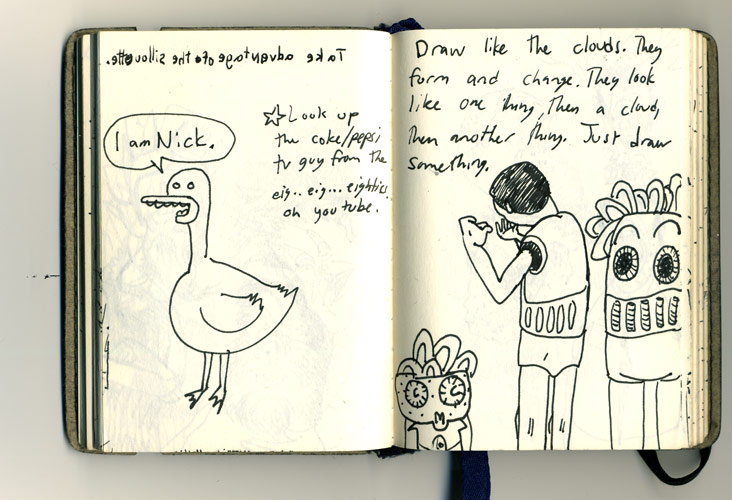 Take advantage of the sillouette.
I am Nick.
☆Look up
the coke/pepsi
tv guy from the
eig.. eig... eighties
on youtube.
Draw like the clouds. They
form and change. They look
like one thing, then a cloud,
then another thing. Just draw
something.